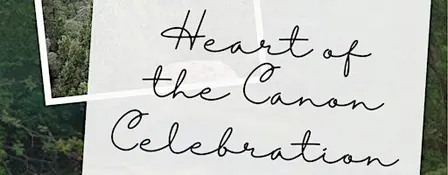 Heart of
the Canon
Celebration